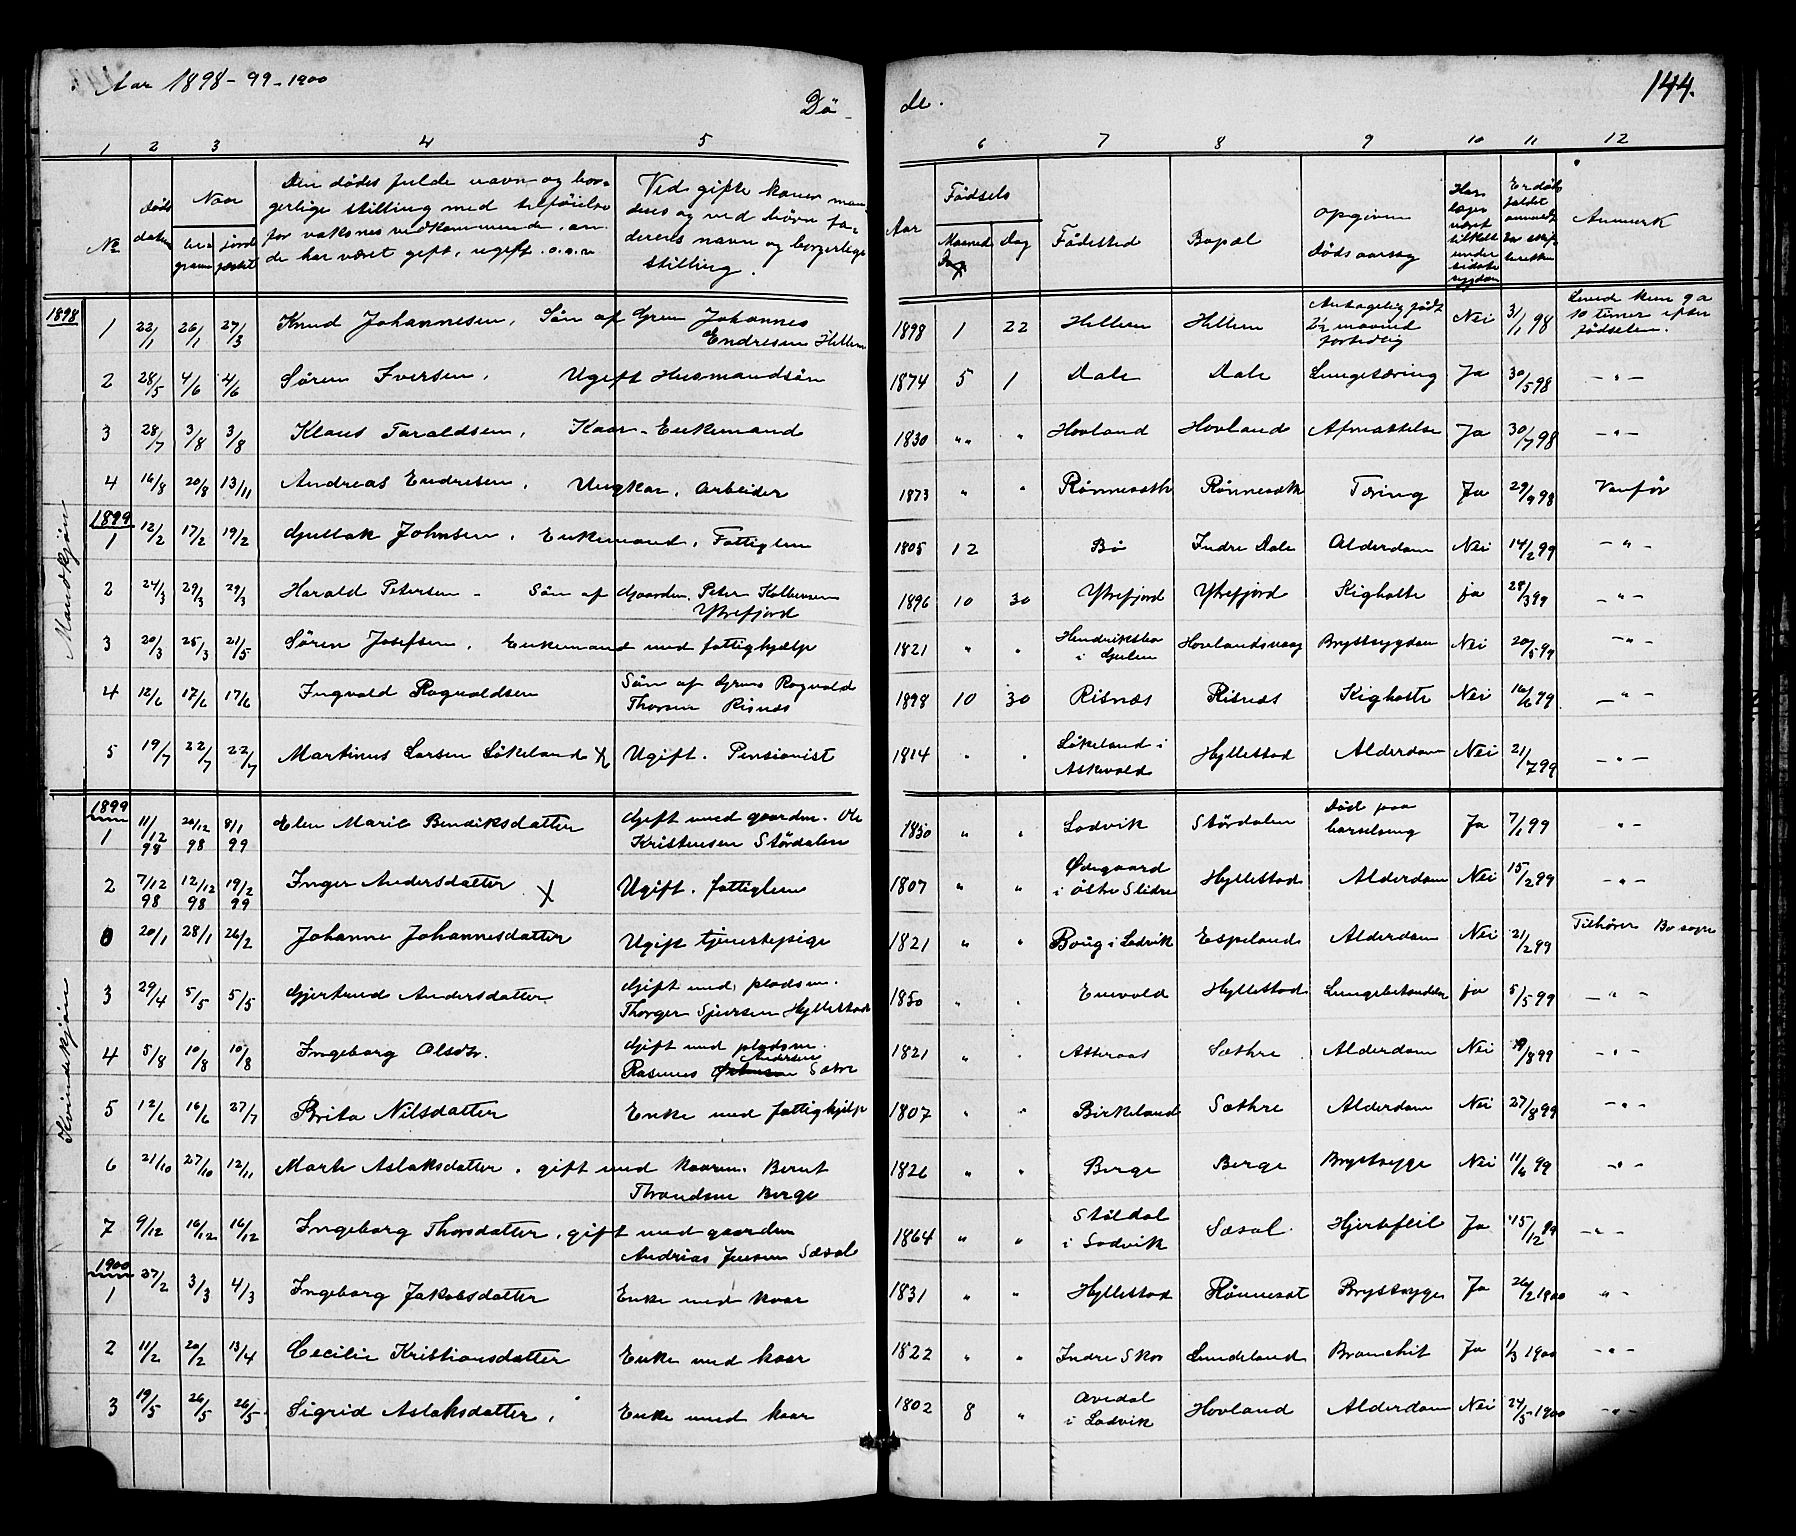 Aar 1898-99-1900
Dö-
de.
144.
1 2 3 4 5 6 7 8 9 10 11 12
No Døds datum Naar begraven jordfæstet Den dødes fulde navn og borgerlige stilling med tilføielse for voksnes vedkommende, om de har været gift, ugift o.s.v. Ved gifte koner mandens og ved børn faderens navn og borgerlige stilling. Aar Fødsels Maaned Dag Fødested Bopæl Opgiven dødsaarsag Anmerk
Mandkjøn
1898
1 22/1 26/1 27/3 Knud Johannesen, Søn af Grm Johannes Endresen Hillem 1898 1 22 Hillem Hillem Antagelig født 2½ maaned fortidlig Nei 31/1 98 Levede kun 9 a 10 timer efter fødselen.
2 28/5 4/6 4/6 Søren Iversen, Ugift Husmandsøn 1874 5 1 Dale Dale Lungetæring Ja 30/5 98 - " -
3 28/7 3/8 3/8 Klaus Taraldsen, Kaar-Enkemand 1830 " " Hovland Hovland Afmattelse Ja 30/7 98 - " -
4 16/8 20/8 13/11 Andreas Endresen, Ungkar, Arbeider 1873 " " Rønnesæth Rønnesæth Tæring Ja 29/9 98 Vanfør
1899
1 12/2 17/2 19/2 Gjullak Johnsen, Enkemand, Fattiglem 1805 12 Bø Indre Dale Alderdom Nei 14/2 99 - " -
2 24/3 29/3 29/3 Harald Petersen - Søn af Gaardm. Peter Kolbensen Ytrefjord 1896 10 30 Ytrefjord Ytrefjord Kighoste ja 28/3 99 - " -
3 20/3 25/3 21/5 Søren Josefsen, Enkemand med fattighjælp 1821 " " Hendriksbø i Gulen Hovlandsvaag Brystsygdom Nei 20/5 99 - " -
4 12/6 17/6 17/6 Ingvald Rognvaldsen Søn af Grms Rognvald Thorsen Risnæs 1898 10 30 Risnæs Risnæs Kighoste Nei 16/6 99 - " -
5 19/7 22/7 22/7 Martinus Larsen Løkeland X Ugift. Pensionist 1814 " " Løkeland i Askevold Hyllestad Alderdom Nei 21/7 99 - " -
Kvindekjøn
1899
1 11/12 98 26/12 98 8/1 99 Elen Marie Bendiksdatter Gift med gaardm. Ole Kristensen Størdalen 1850 " " Ladvik Størdalen Død paa barselseng Ja 7/1 99 " -
2 7/12 98 12/12 98 19/2 99 Inger Andersdatter X Ugift. fattiglem 1807 " " Ødegaard i Østre Slidre Hyllestad Alderdom Nei 15/2 99 - " -
0 20/1 28/1 26/2 Johanne Johannesdatter Ugift tjenestepige 1821 " " Boug i Ladvik Espeland Alderdom Nei 21/2 99 Tilhører Bø sogn
3 29/4 5/5 5/5 Gjertrud Andersdatter Gift med pladsm. Thorger Sjursen Hyllestad 1850 " " Enevold Hyllestad Lungebetændelse ja 5/5 99 - " -
4 5/8 10/8 10/8 Ingeborg Olsdtr. Gift med pladsm. Rasmus Andersen Sætre 1821 " " Atteraas Sæthre Alderdom Nei 19/8 99 - " -
5 12/6 16/6 27/7 Brita Nilsdatter Enke med fattighjelp 1807 " " Birkeland Sæthre Alderdom Nei 27/8 99 - " -
6 21/10 27/10 12/11 Marte Aslaksdatter, gift med kaarm. Bernt Thrandsen Berge 1826 " " Berge Berge Brystsyge Nei 11/11 99 - " -
7 9/12 16/12 16/12 Ingeborg Thorsdatter, gift med gaardm Andrias Jensen Sæsol 1864 " " Støldal i Ladvik Sæsol Hjertefeil Ja 15/12 99 - " -
1900
1 27/2 3/3 4/3 Ingeborg Jakobsdatter Enke med kaar 1831 " " Hyllestad Rønneset Brystsyge Ja 26/2 1900 " -
2 11/2 20/2 13/4 Cecilie Kristiansdatter Enke med kaar 1822 " " Indre Skor Lundeland Bronchit Ja 1/3 1900 - " -
3 19/5 26/5 26/5 Sigrid Aslaksdatter, Enke med kaar 1802 8 " Avedal i Ladvik Hovland Alderdom Nei 24/5-1900 - " -